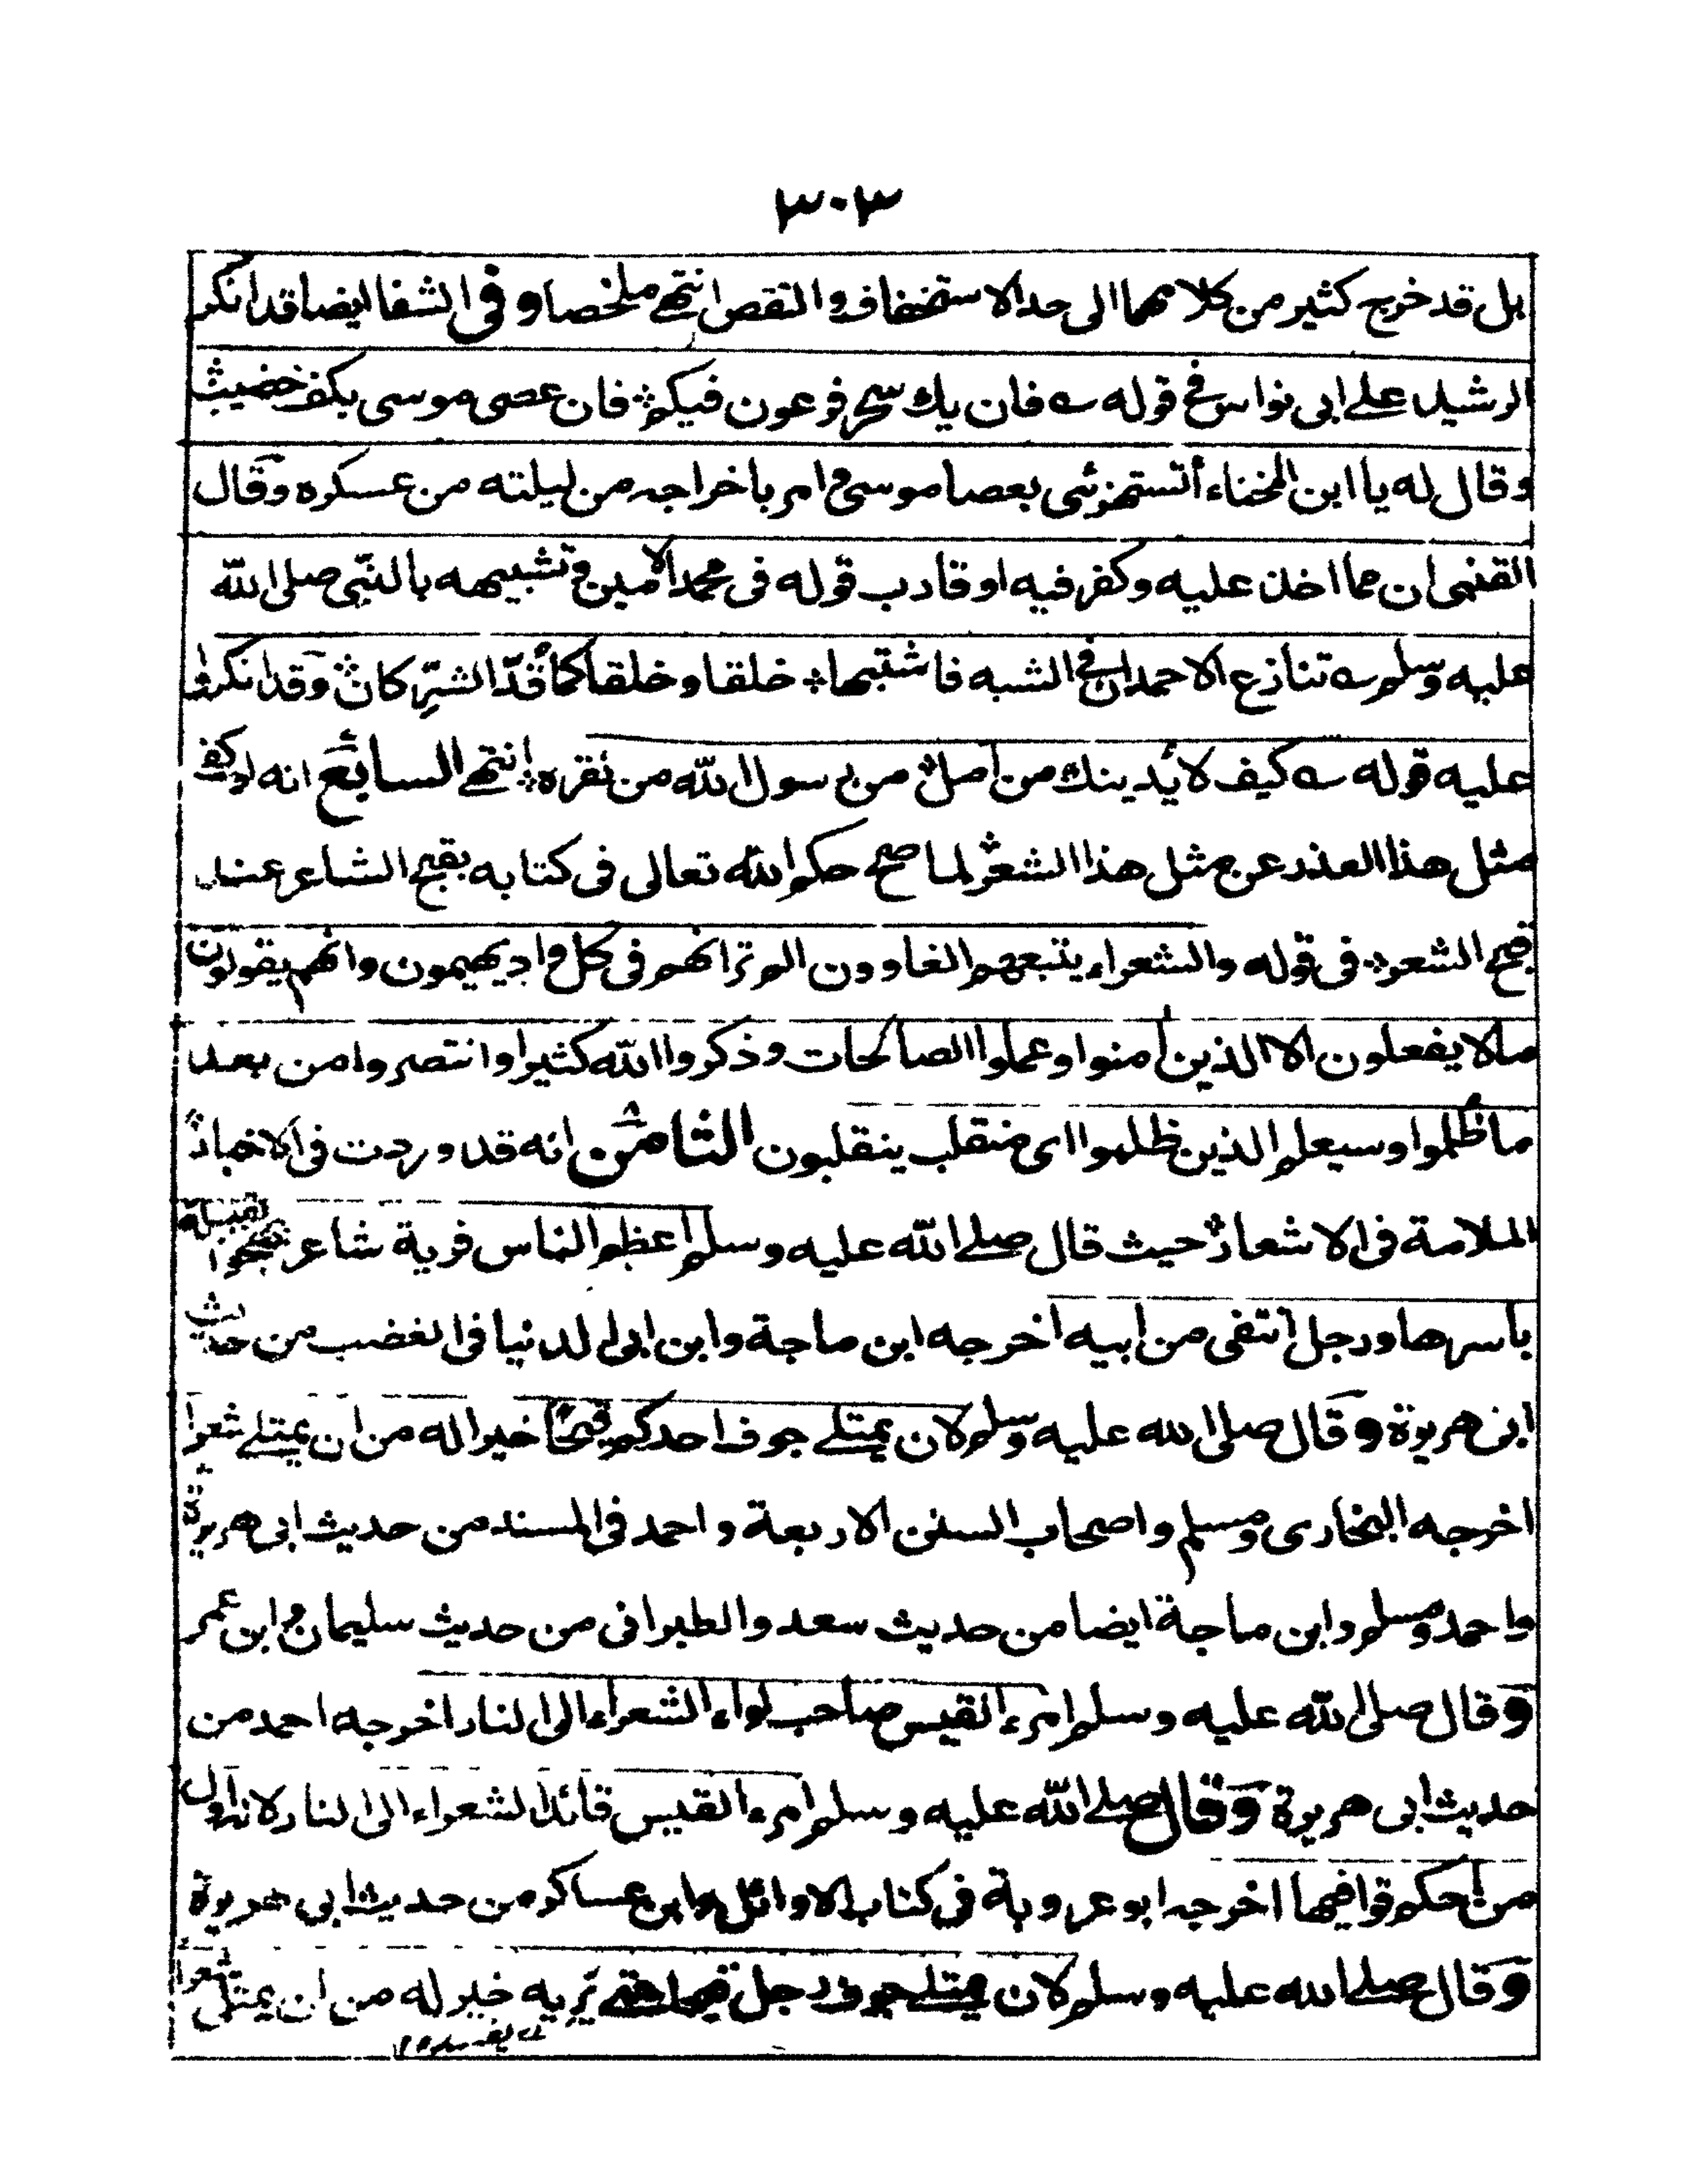 ٣٠٣
بل قد خرج كثير من كلامهما الى حد الاستخفاف والنقص انتهى ملخصا وفي الشفا ايضا قد انكر
الرشيد على ابى نواس في قوله ـه فان يك سحر فرعون فيكم ؞ فان عصى موسى بكف خضيب
وقال له يا ابن اللخناء أتستهزئى بعصا موسى و امر باخراجه من ليلته من عسكره وقال
القتبى ان مما اخذ عليه وكفر فيه او قارب قوله فى محمد الامين و تشبيهه بالنبي صلى الله
عليه وسلم ـه تنازع الاحمدان في الشبه فاشتبها ؞ خلقا وخلقا كما قدّ الشرِّكان ؞ وقد انكروا
عليه قوله ـه كيف لا يدينك من أمل ؞ من رسول الله من نفره ؞ انتهى السابع انه لو كفى
مثل هذا العذر عن مثل هذا الشعر ؞ لما صح حكم الله تعالى فى كتابه بقبح الشاعر عند
قبح الشعر ؞ فى قوله والشعراء يتبعهم الغاوون الم تر انهم فى كل واد يهيمون وانهم يقولون
مالا يفعلون الا الذين أمنوا وعملوا الصالحات وذكروا الله كثيرا وانتصروا من بعد
ما ظلموا وسيعلم الذين ظلموا اى منقلب ينقلبون الثامن انه قد وردت فى الاخبار ؞
الملامة فى الاشعار ؞ حيث قال صلى الله عليه وسلم اعظم الناس فرية شاعر يهجوا لقبيلة
باسرها ورجل انتفى من ابيه اخرجه ابن ماجة وابن ابى الدنيا فى الغضب من حديث
ابى هريرة وقال صلى الله عليه وسلم لان يمتلى جوف احدكم قيحًا خير له من ان يمتلى شعرا
اخرجه البخارى ومسلم واصحاب السنن الاربعة واحمد فى المسند من حديث ابى هريرة
واحمد ومسلم وابن ماجة ايضا من حديث سعد والطبرانى من حديث سليمان و ابن عمر
وقال صلى الله عليه وسلم امرء القيس صاحب لواء الشعراء الى النار اخرجه احمد من
حديث ابى هريرة وقال صلى الله عليه وسلم امرء القيس قائد الشعراء الى النار لانه اول
من أحكم قوافيها اخرجه ابو عروبة فى كتاب الاوائل وابن عساكر من حديث ابى هريرة
وقال صلى الله عليه وسلم لان يمتلى جوف رجل قيحا حتى يريه خير له من ان يمتلى شعرا